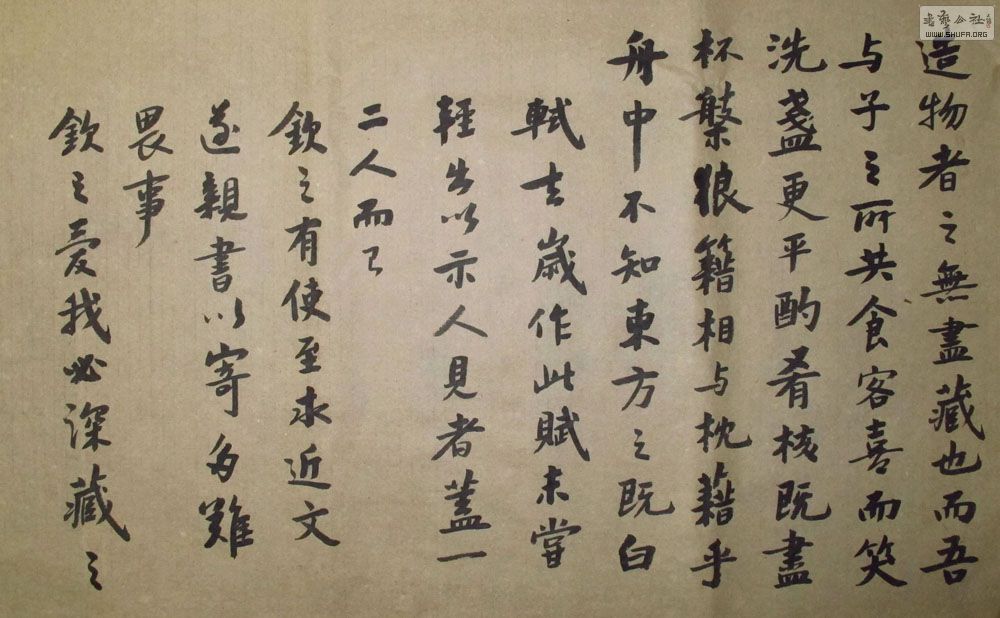 造物者之無盡藏也而吾
与子之所共食客喜而笑
洗盞更平酌肴核既盡
杯槃狼籍相与枕藉乎
舟中不知東方之既白
軾去歲作此賦未嘗
輕出以示人見者蓋一
二人而已
欽之有使至求近文
遂親書以寄多難
畏事
欽之愛我必深藏之
WWW.SHUFA.ORG